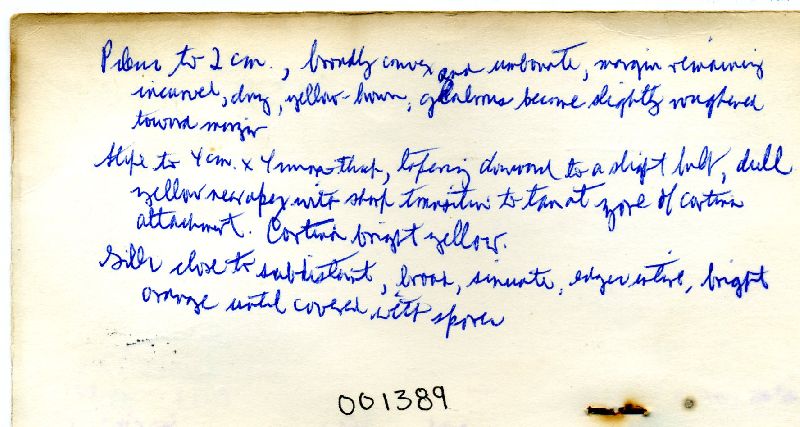 Pileus to 2 cm., broadly convex and umbonate, margin remaining
incurved, dry, yellow-brown, glabrous become slightly roughened
toward margin
Stipe to 4 cm. x 4 mm thick, tapering downward to a slight bulb, dull
yellow near apex with sharp transition to tan at zone of cortina
attachment. Cortina bright yellow.
Gills close to subdistant, broad, sinuate, edges entire, bright
orange until covered with spores
001389